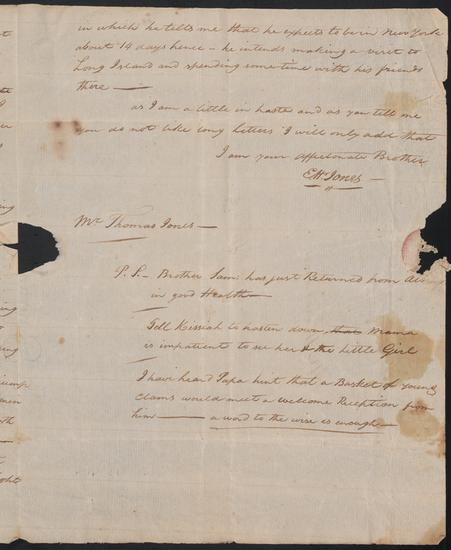 in which he tells me that he expects to be in New York
about 14 days hence – he intends making a visit to
Long Island and spending some time with his friends
there —
as I am a little in haste and as you tell me
you do not like long Letters I will only add that
I am your affectionate Brother
Jones —
Mr Thomas Jones —
P.S. – Brother Sam has just Returned from
in good Health —
Tell Kissiah to hasten down, that Mama
is impatient to see her & the Little Girl
I have heard Papa hint that a Basket of Young
clams would meet a welcome Reception from
him — a word to the wise is enough —